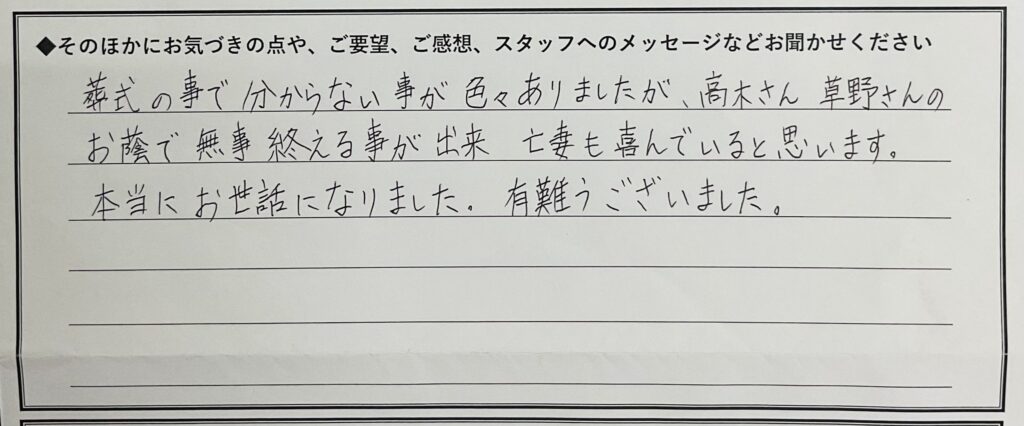 ◆そのほかにお気づきの点や、ご要望、ご感想、スタッフへのメッセージなどお聞かせください
葬式の事で分からない事が色々ありましたが、高木さん 草野さんの
お蔭で無事終える事が出来 亡妻も喜んでいると思います。
本当にお世話になりました。有難うございました。